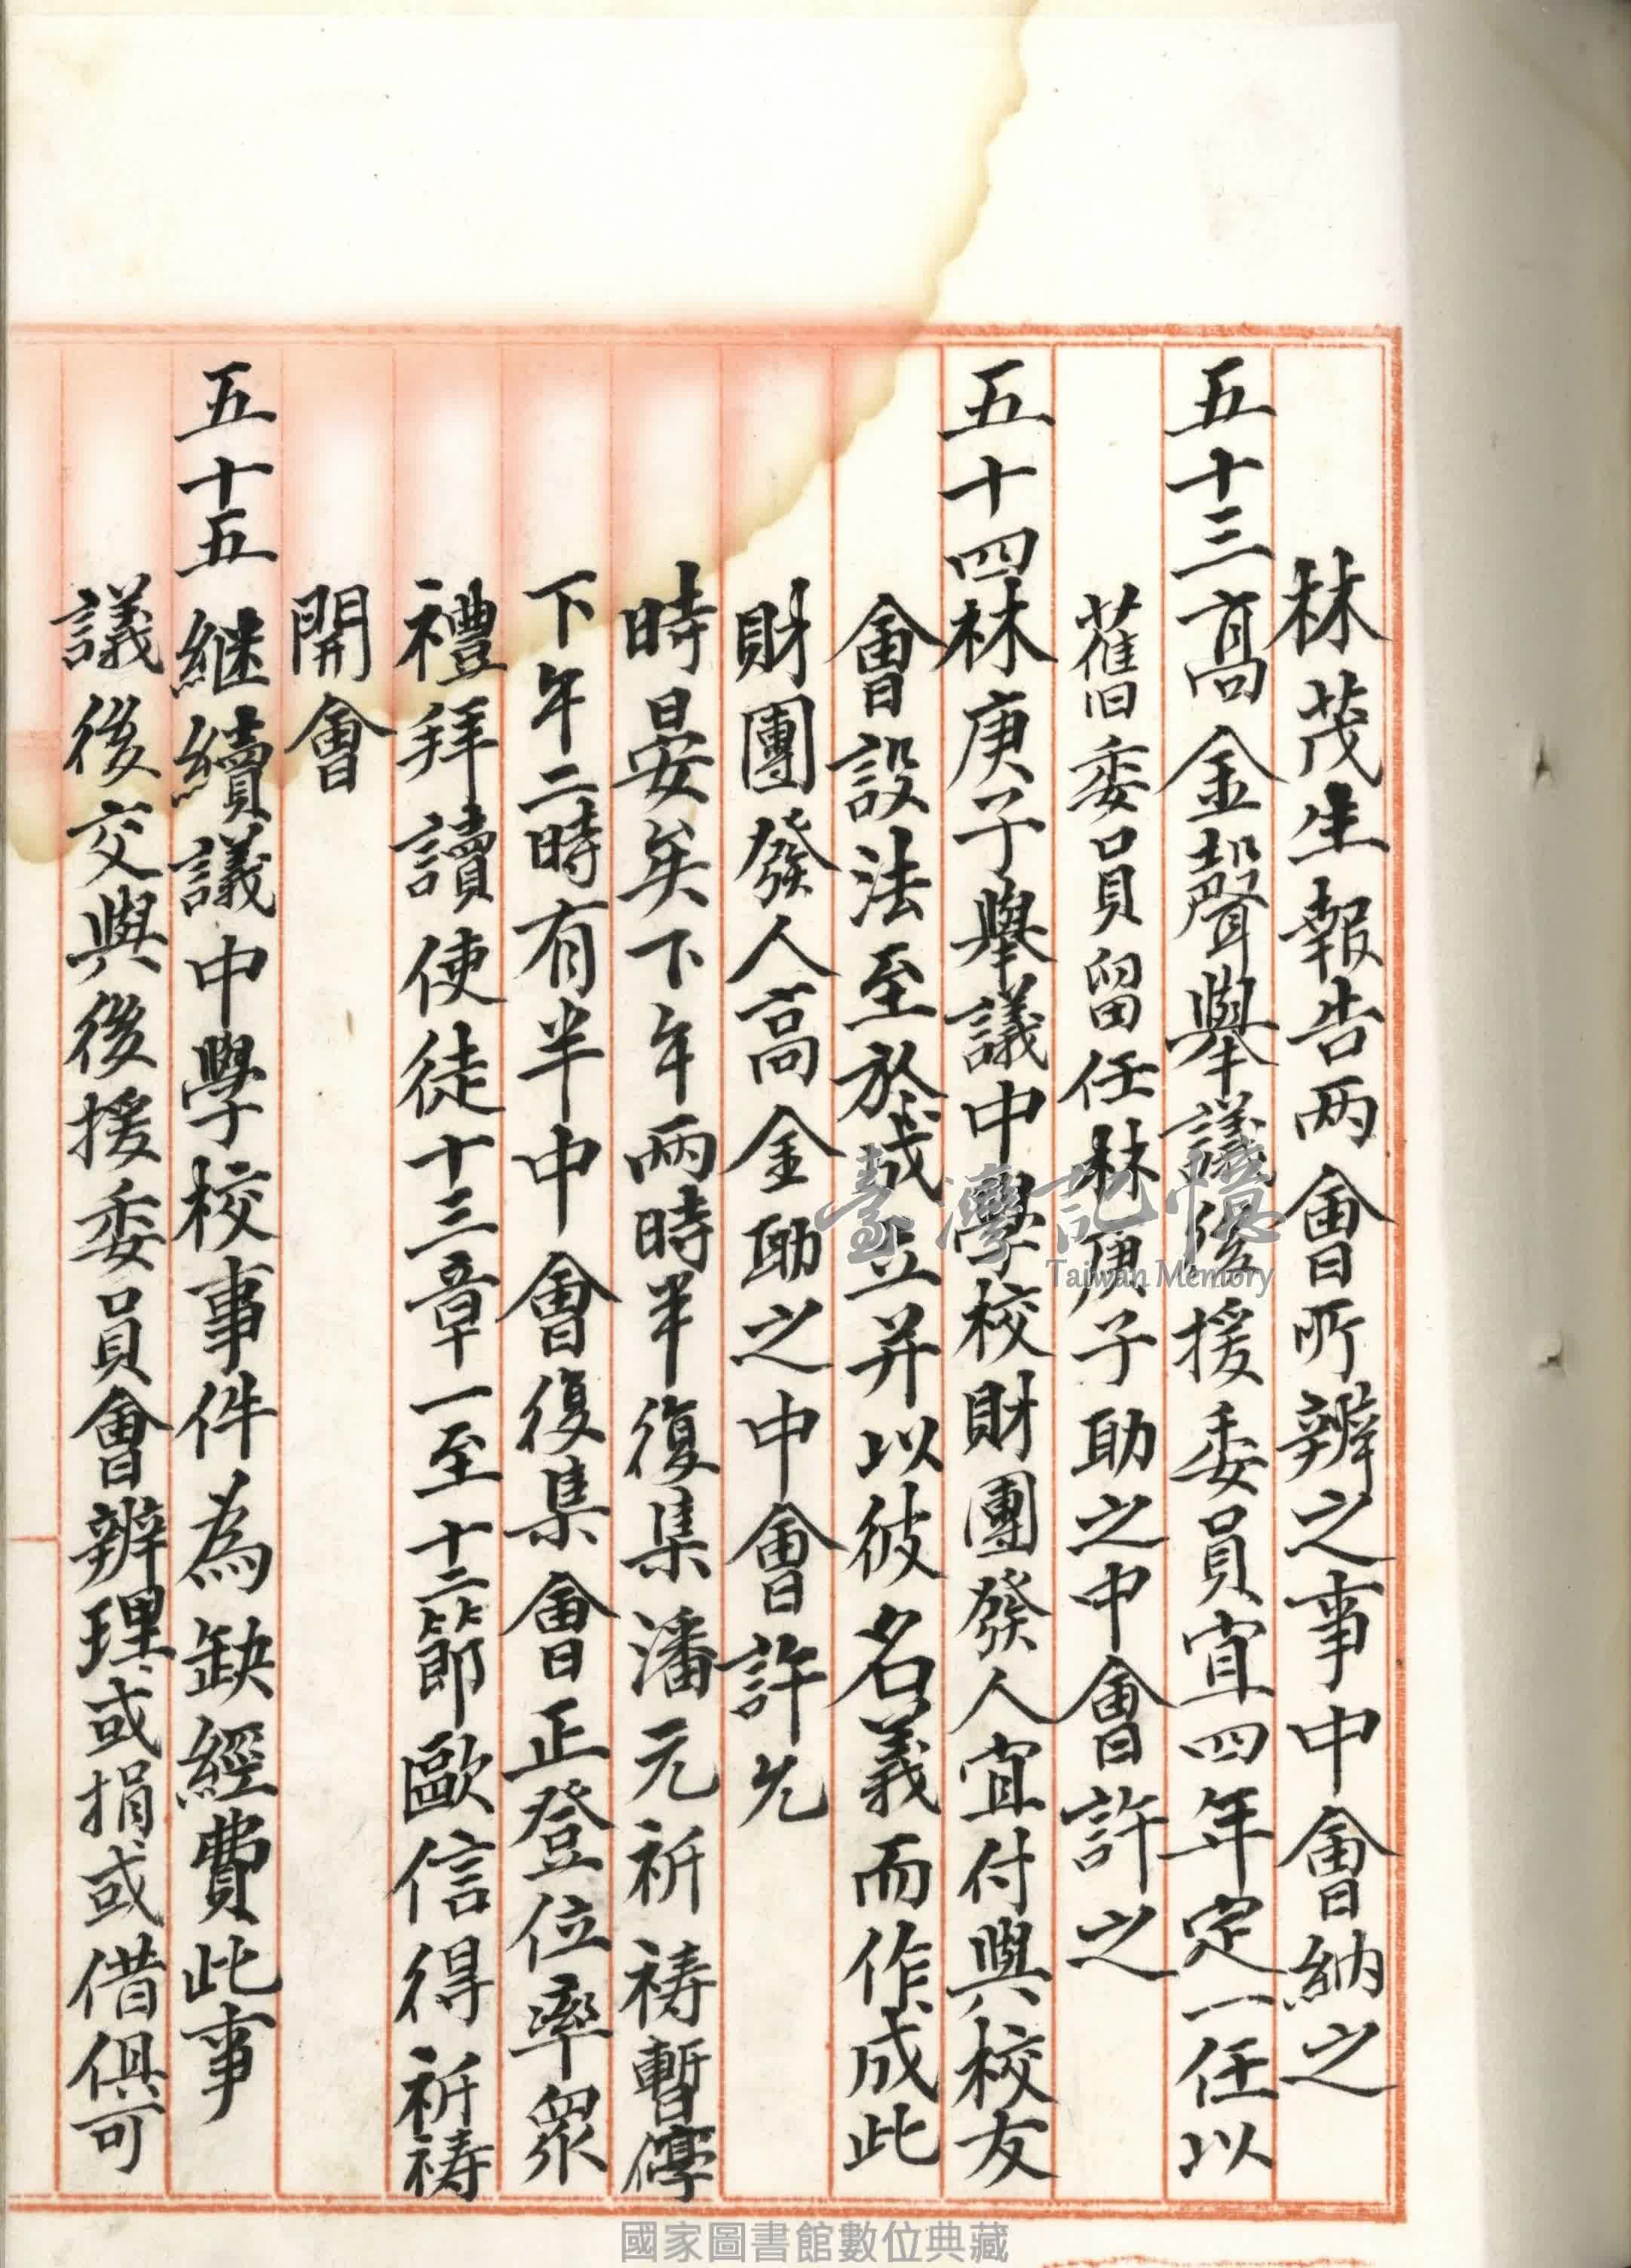 林茂生報告兩會所辨之事中會納之
五十三高金聲舉議後援委員宜四年定一任以
舊委員留任林庚子助之中會許之
五十四林庚子舉議中學校財團發人宜付與校友
會設法至於成立并以彼名義而作成此
財團發人高金助之中會許允
時晏矣下午兩時半復集潘元祈禱暫停
下午二時有半中會復集會正登位率眾
禮拜讀使徒十三章一至十二節歐信得祈禱
開會
五十五繼續議中學校事件為缺經費此事
議後交與後援委員會辨理或捐或借俱可
臺灣記憶
Taiwan Memory
國家圖書館數位典藏